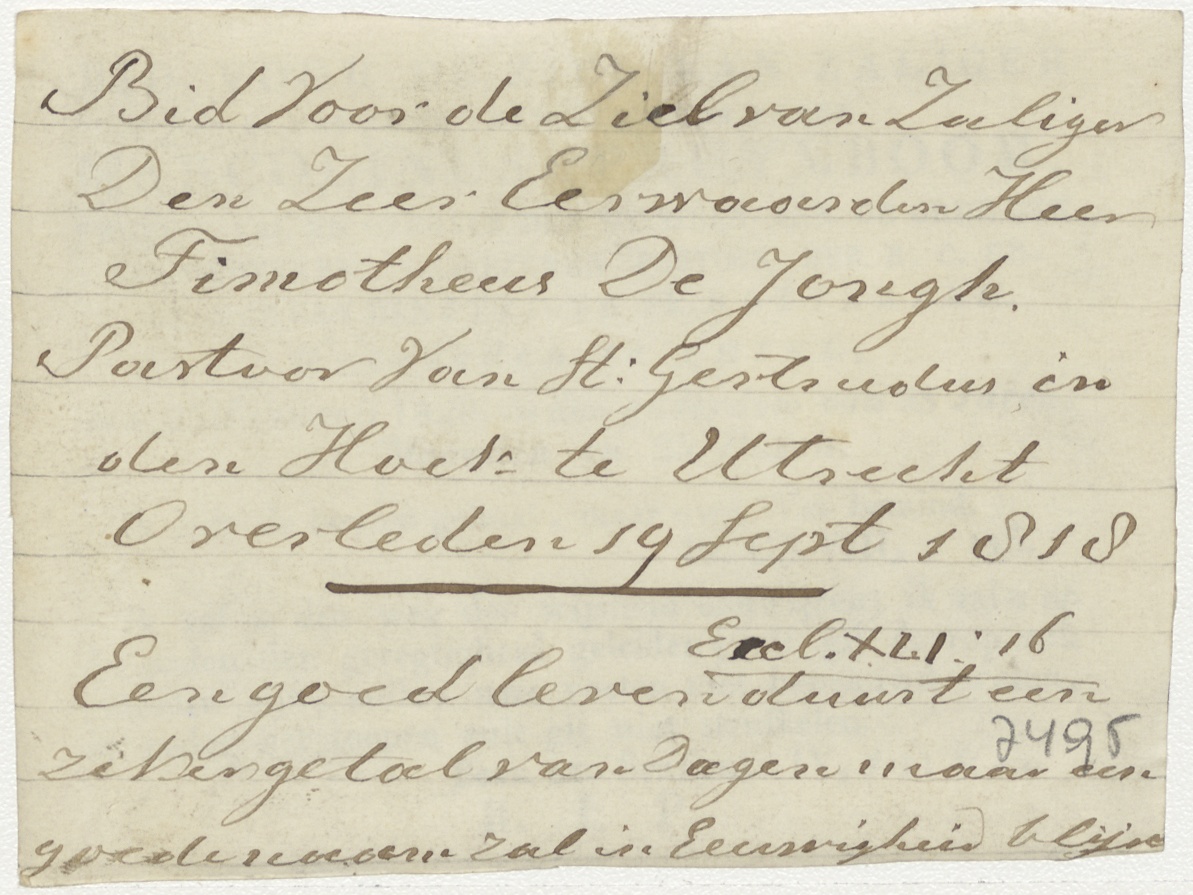 Bid Voor de Ziel van Zaliger
Den Zeer Eerwaarden Heer
Timotheus De Jongh.
Pastoor Van St: Gertrudus in
den Hoek te Utrecht
Overleden 19 Sept 1818
Eccl. XLI: 16
Een goed leven duurt een
zeker getal van Dagen maar een
7495
goede naam zal in Eeuwigheid blijve